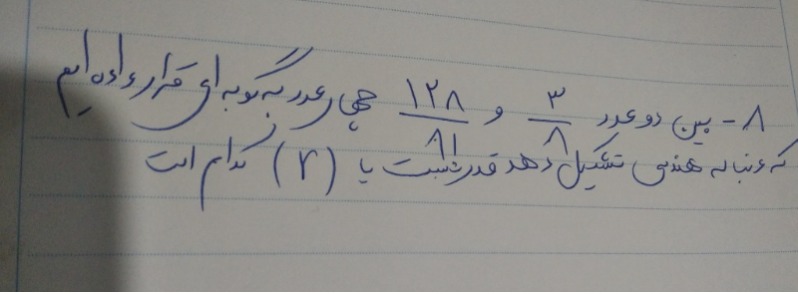 ۸- بین دو عدد ۳/۸ و ۱۲۸/۸۱ چهار عدد به گونه ای قرار داده ایم
که دنباله هندسی تشکیل دهد قدر نسبت یا (r) کدام است